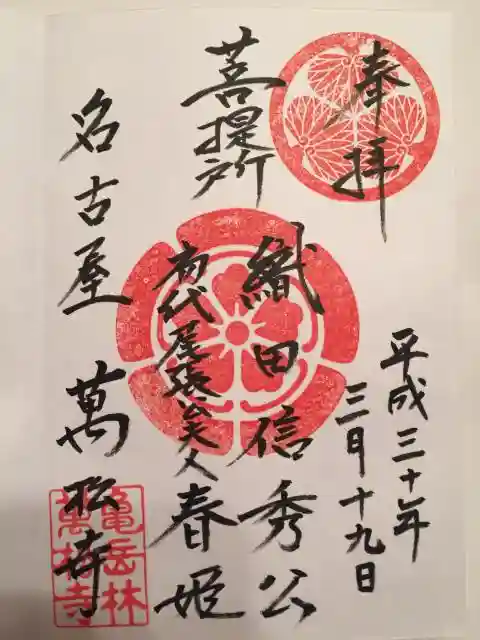 奉拝
平成三十年
三月十九日
菩提所
織田信秀公
初代尾張公夫人
春姫
名古屋 萬松寺
亀岳林
萬松寺